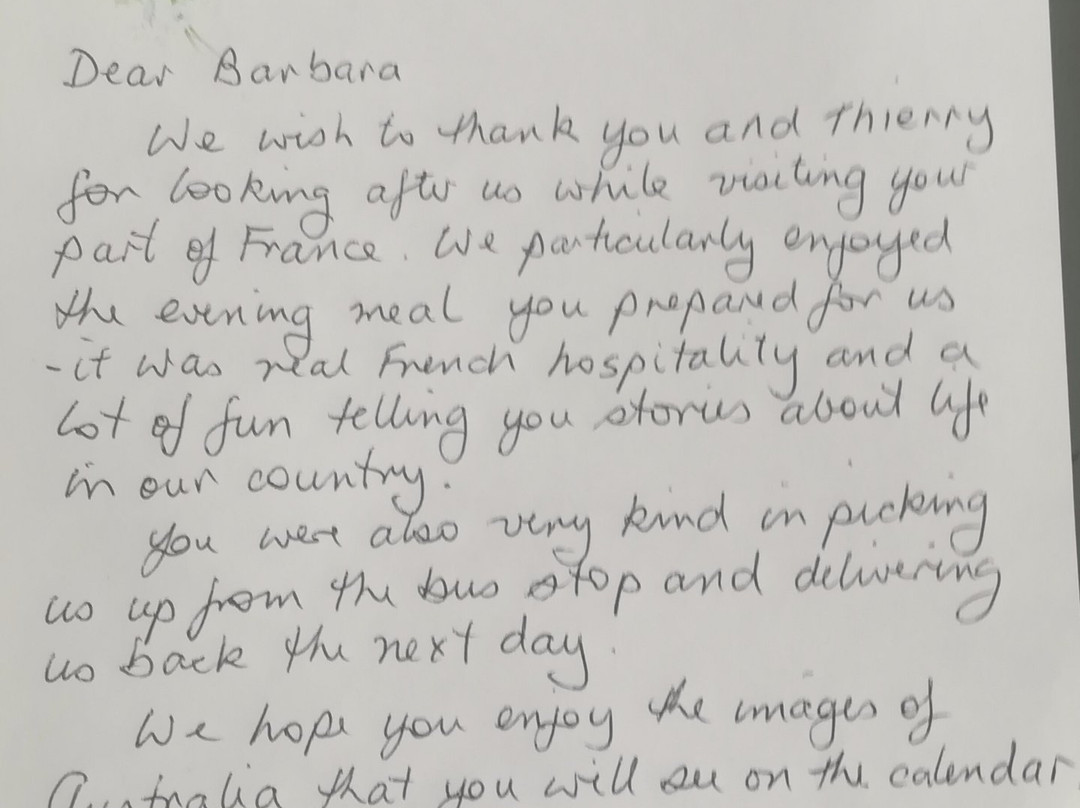 Dear Barbara
We wish to thank you and Thierry
for looking after us while visiting your
part of France. We particularly enjoyed
the evening meal you prepared for us
- it was real French hospitality and a
lot of fun telling you stories about life
in our country.
You were also very kind in picking
us up from the bus stop and delivering
us back the next day.
We hope you enjoy the images of
Australia that you will see on the calendar